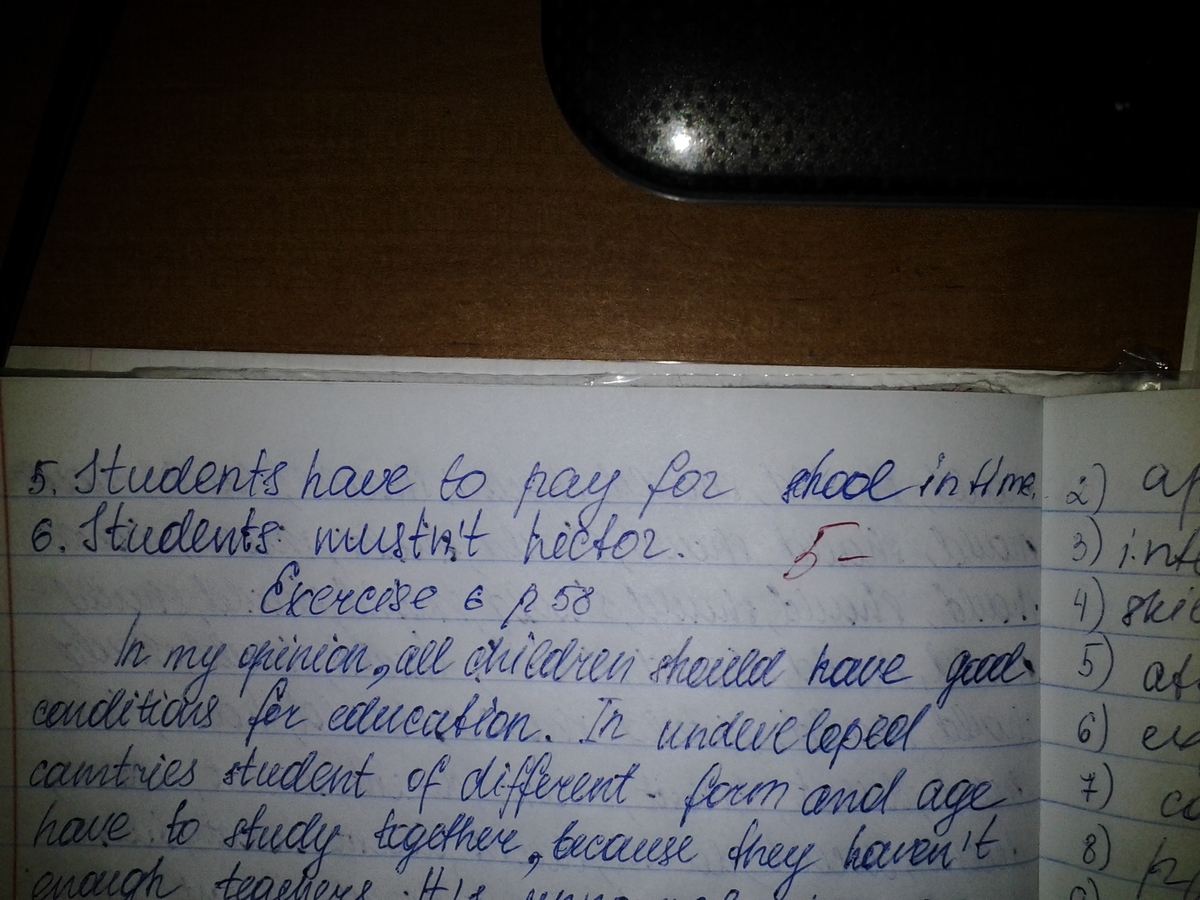 5. Students have to pay for shool in time.
6. Students mustn't hector. 5-
Exercise 6 p 58
In my opinion, all children should have good
conditions for education. In undeveloped
countries student of different form and age
have to study together, because they haven't
enough teachers. It's
2)
3)
4)
5)
6)
7)
8)